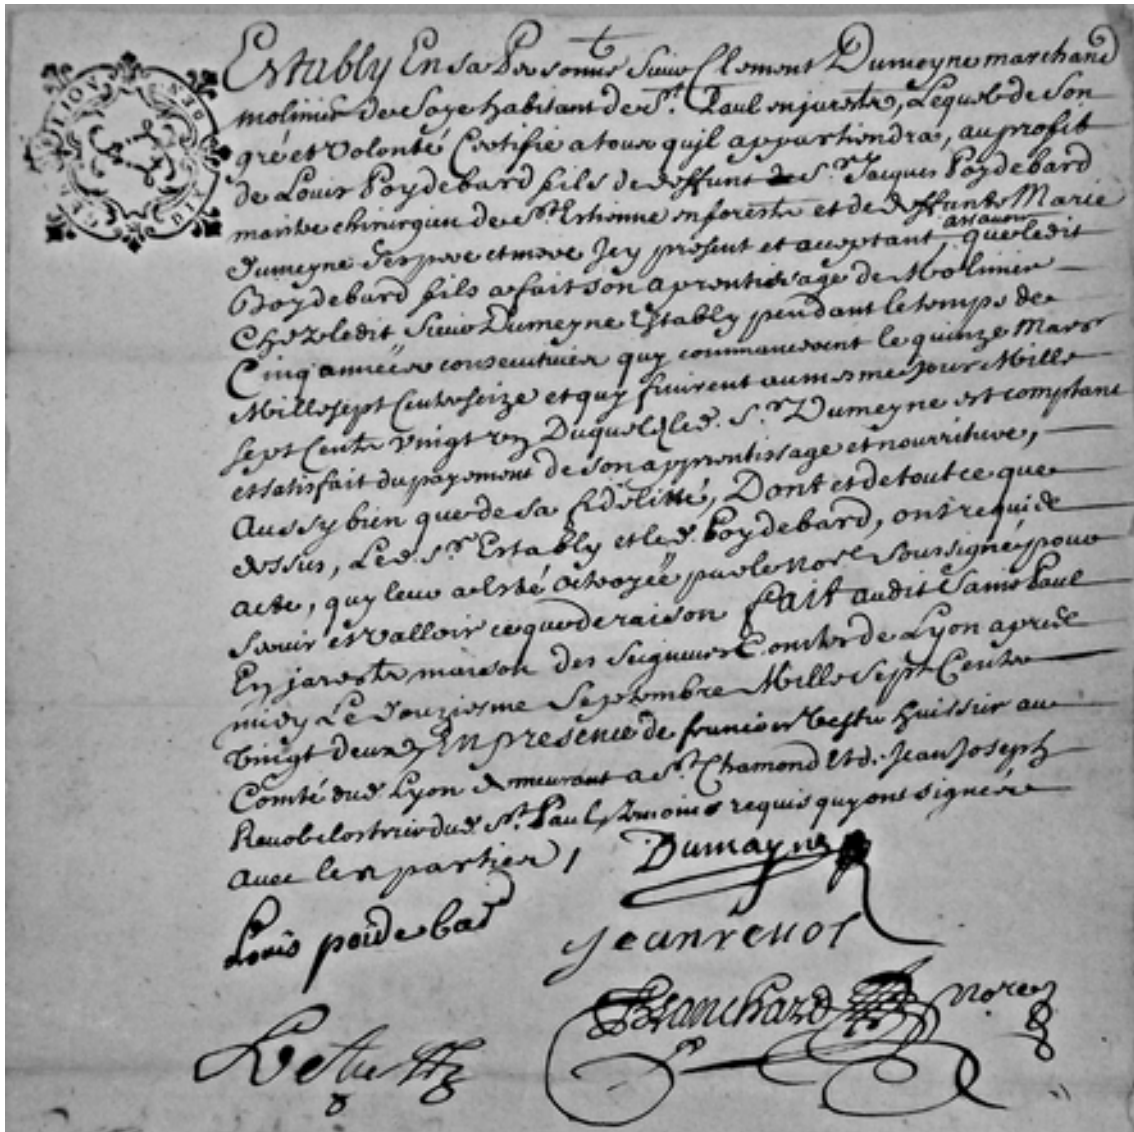 EstablY En sa Personne Sieur Clement Dumeyne marchand
molinier de Soye habitant de St. Paul en jarestz, Lequel de Son
gré et volonté Certifie a tous quil appartiendra, au profit
de Louis Poydebard fils de deffunt de Sr. Jacques Poydebard
maitre chirurgien de St. Estienne en forestz et de deffunte Marie
Dumeyne Ses pere et mere Jcy present et aceptant, asscavoir que ledit
Poydebard fils a fait son aprentissage de Molinier
Chez ledit Sieur Dumeyne Establly pendant le temps de
Cinq années consecutives quy commancerent le quinze Mars
Mille sept Cents seize et quy finirent au mesme jour Mille
sept Cents vingt un Duquel led. Sr. Dumeyne est comptant
et satisfait du payement de son apprentissage et nourriture,
Aussy bien que de sa fidelitté, Dont et de tout ce que
dessus, Led. Sr. Establly et led. Poydebard, ont requis
acte, quy leur a esté octroyée par le nore. Soussigné pour
Servir et valloir ce que de raison fait audit Saint Paul
En jarestz maison des Seigneurs Comtes de Lyon apres
midy Le Douziesme Septembre Mille Sept Cents
vingt deux En presence de francois Testu huissier au
Comté dud. Lyon demeurant a St. Chamond Et d. Jean Joseph
dud. St. Paul temoins requis quy ont signé
avec les parties,
Dumayne
Louis poidebar
jean revol
Testu
Blanchard nore